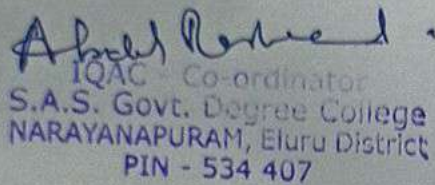 IQAC Co-ordinator
S.A.S. Govt. Degree College
NARAYANAPURAM, Eluru District
PIN - 534 407